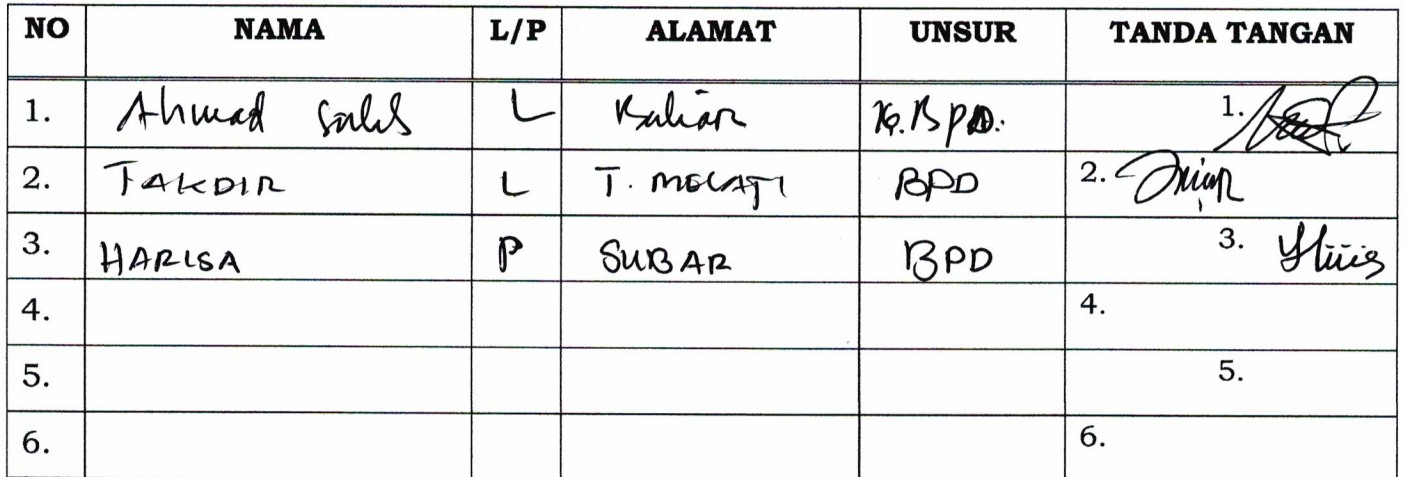 NO NAMA L/P ALAMAT UNSUR TANDA TANGAN
1. Ahmad L K.BPD. 1.
2. TAKDIR L T. MELATI BPD 2.
3. HARISA P SUBAR BPD 3.
4. 4.
5. 5.
6. 6.